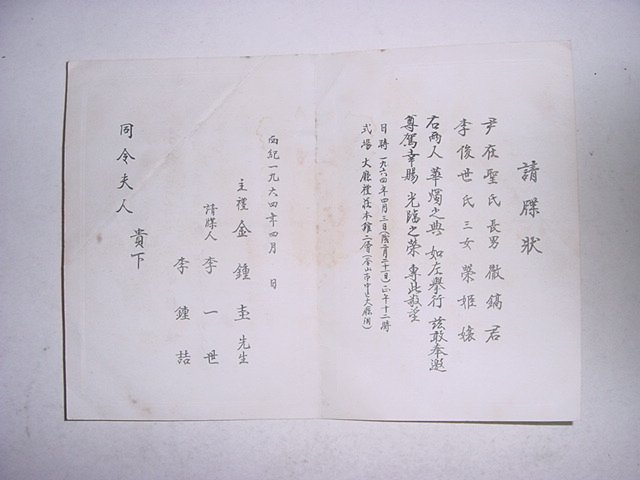 請牒狀
尹在聖氏 長男 徹鎬 君
李俊世氏 三女 榮姬 孃
右兩人 華燭之典 如左擧行 玆敢奉邀
尊駕幸賜 光臨之榮 專此敬望
日時 一九六四年四月三日(陰二月二十一日) 正午十二時
式場 大廳禮式本館二層
西紀一九六四年四月 日
主禮 金鍾圭 先生
請牒人 李一世
李鍾喆
同令夫人 貴下